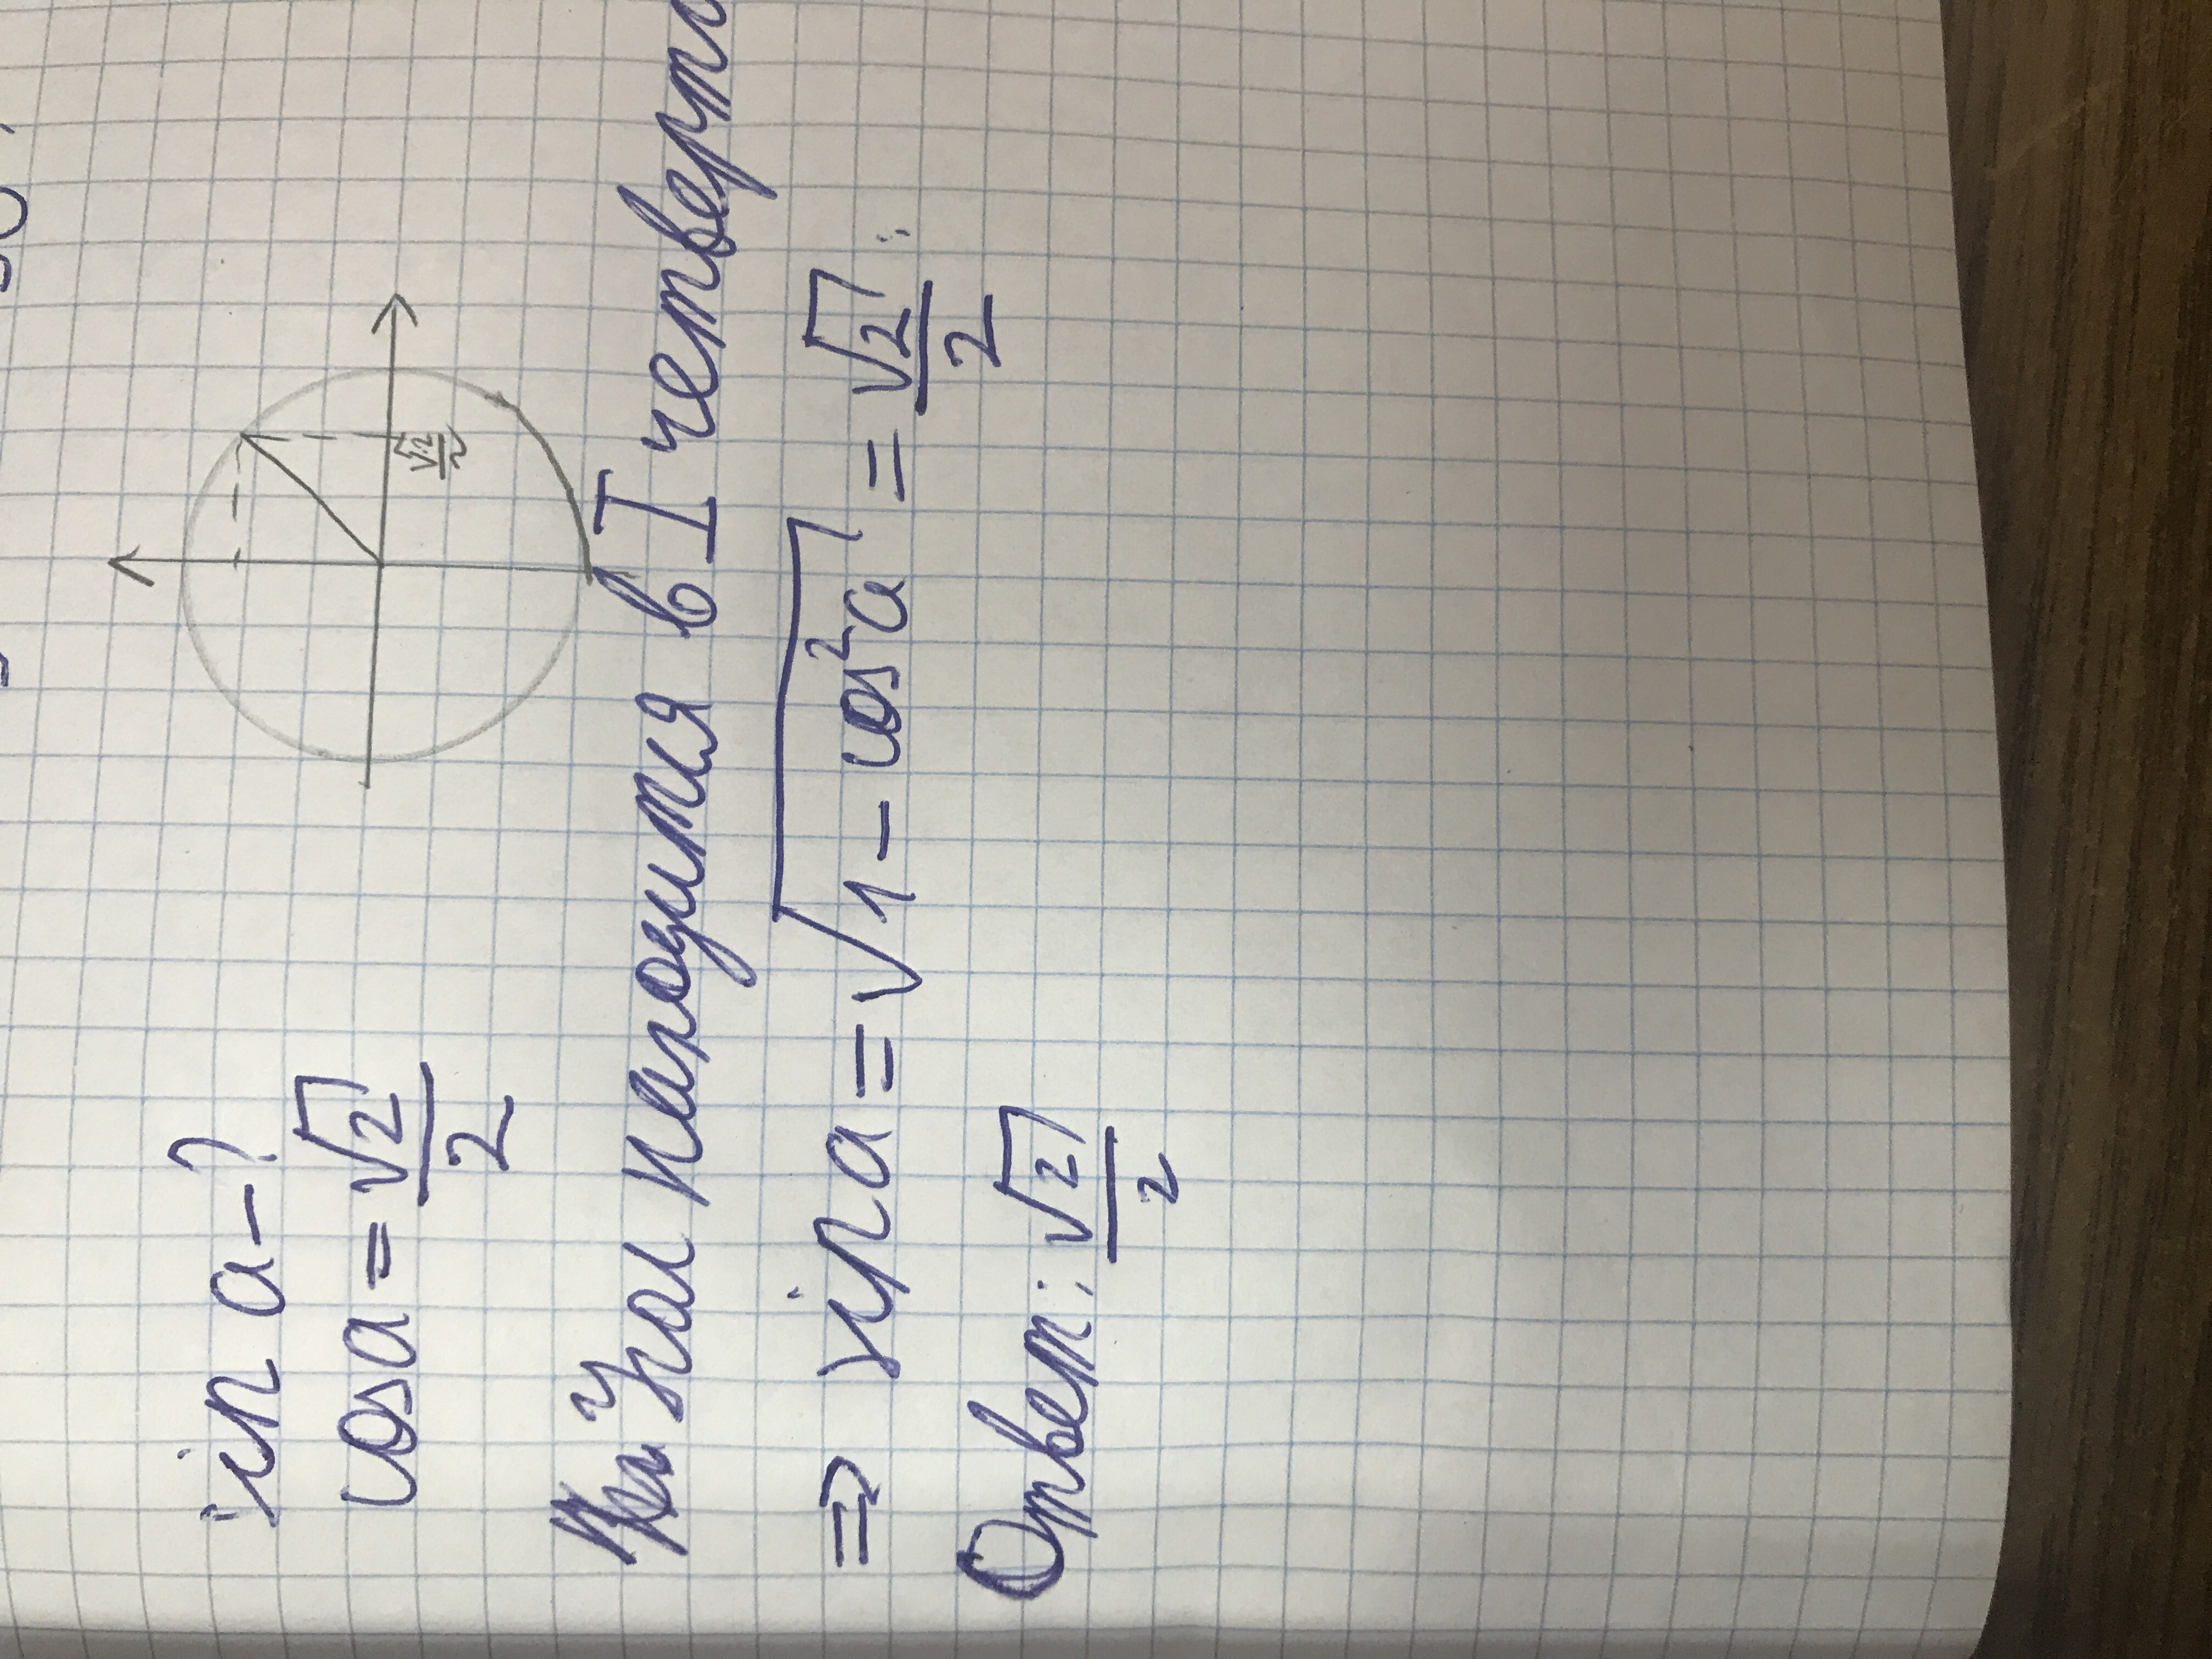 sin a - ?
cos a = √2/2
√2/2
находится в I четверт
=> sin a = √1 - cos²a = √2/2
Ответ: √2/2